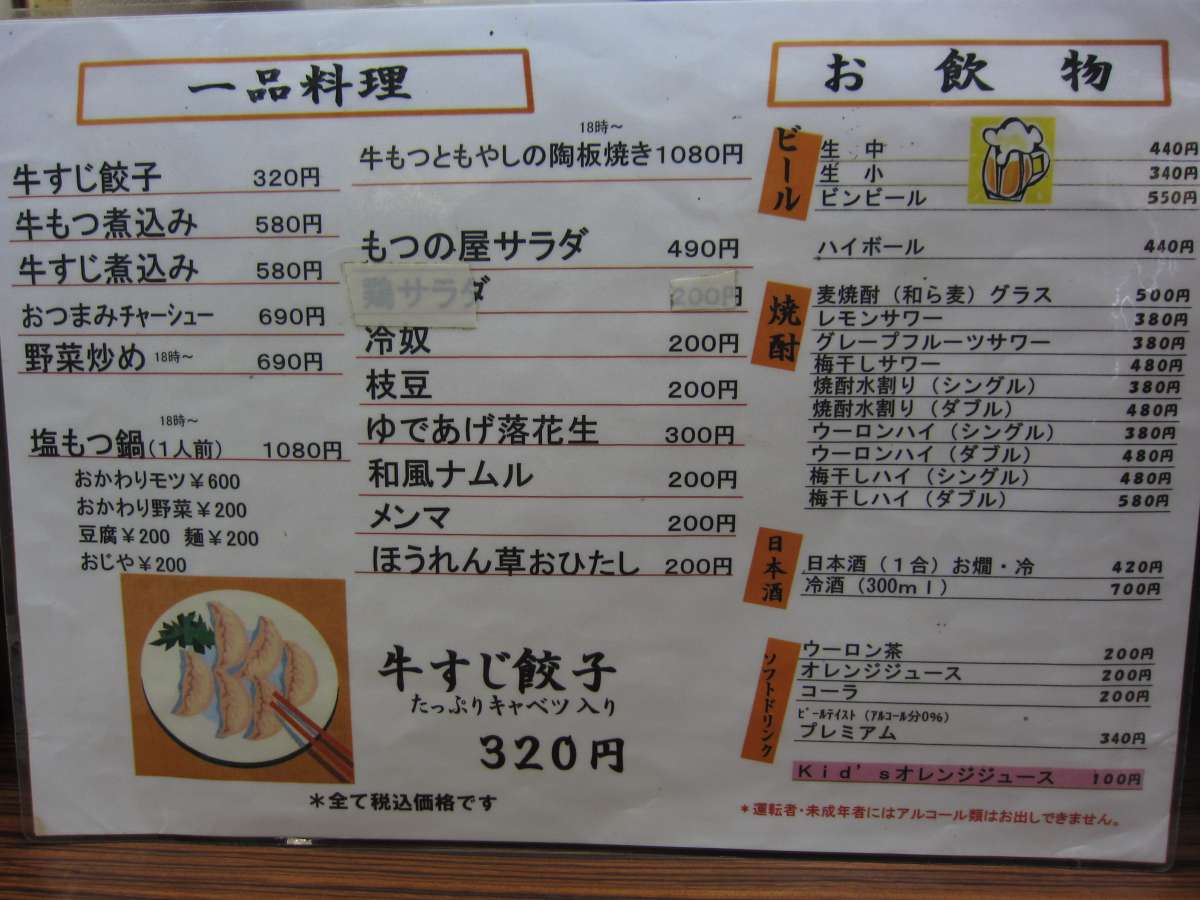 一品料理
牛すじ餃子 320円
牛もつ煮込み 580円
牛すじ煮込み 580円
おつまみチャーシュー 690円
野菜炒め 18時～ 690円
18時～
塩もつ鍋(1人前) 1080円
おかわりモツ￥600
おかわり野菜￥200
豆腐￥200 麺￥200
おじや￥200
18時～
牛もつともやしの陶板焼き1080円
もつの屋サラダ 490円
鶏サラダ 200円
冷奴 200円
枝豆 200円
ゆであげ落花生 300円
和風ナムル 200円
メンマ 200円
ほうれん草おひたし 200円
牛すじ餃子
たっぷりキャベツ入り
320円
＊全て税込価格です
お飲物
ビール
生 中 440円
生 小 340円
ビンビール 550円
ハイボール 440円
焼酎
麦焼酎（和ら麦）グラス 500円
レモンサワー 380円
グレープフルーツサワー 380円
梅干しサワー 480円
焼酎水割り（シングル） 380円
焼酎水割り（ダブル） 480円
ウーロンハイ（シングル） 380円
ウーロンハイ（ダブル） 480円
梅干しハイ（シングル） 480円
梅干しハイ（ダブル） 580円
日本酒
日本酒（1合）お燗・冷 420円
冷酒（300ml） 700円
ソフトドリンク
ウーロン茶 200円
オレンジジュース 200円
コーラ 200円
ビールテイスト（アルコール分0%）
プレミアム 340円
Kid'sオレンジジュース 100円
＊運転者・未成年者にはアルコール類はお出しできません。